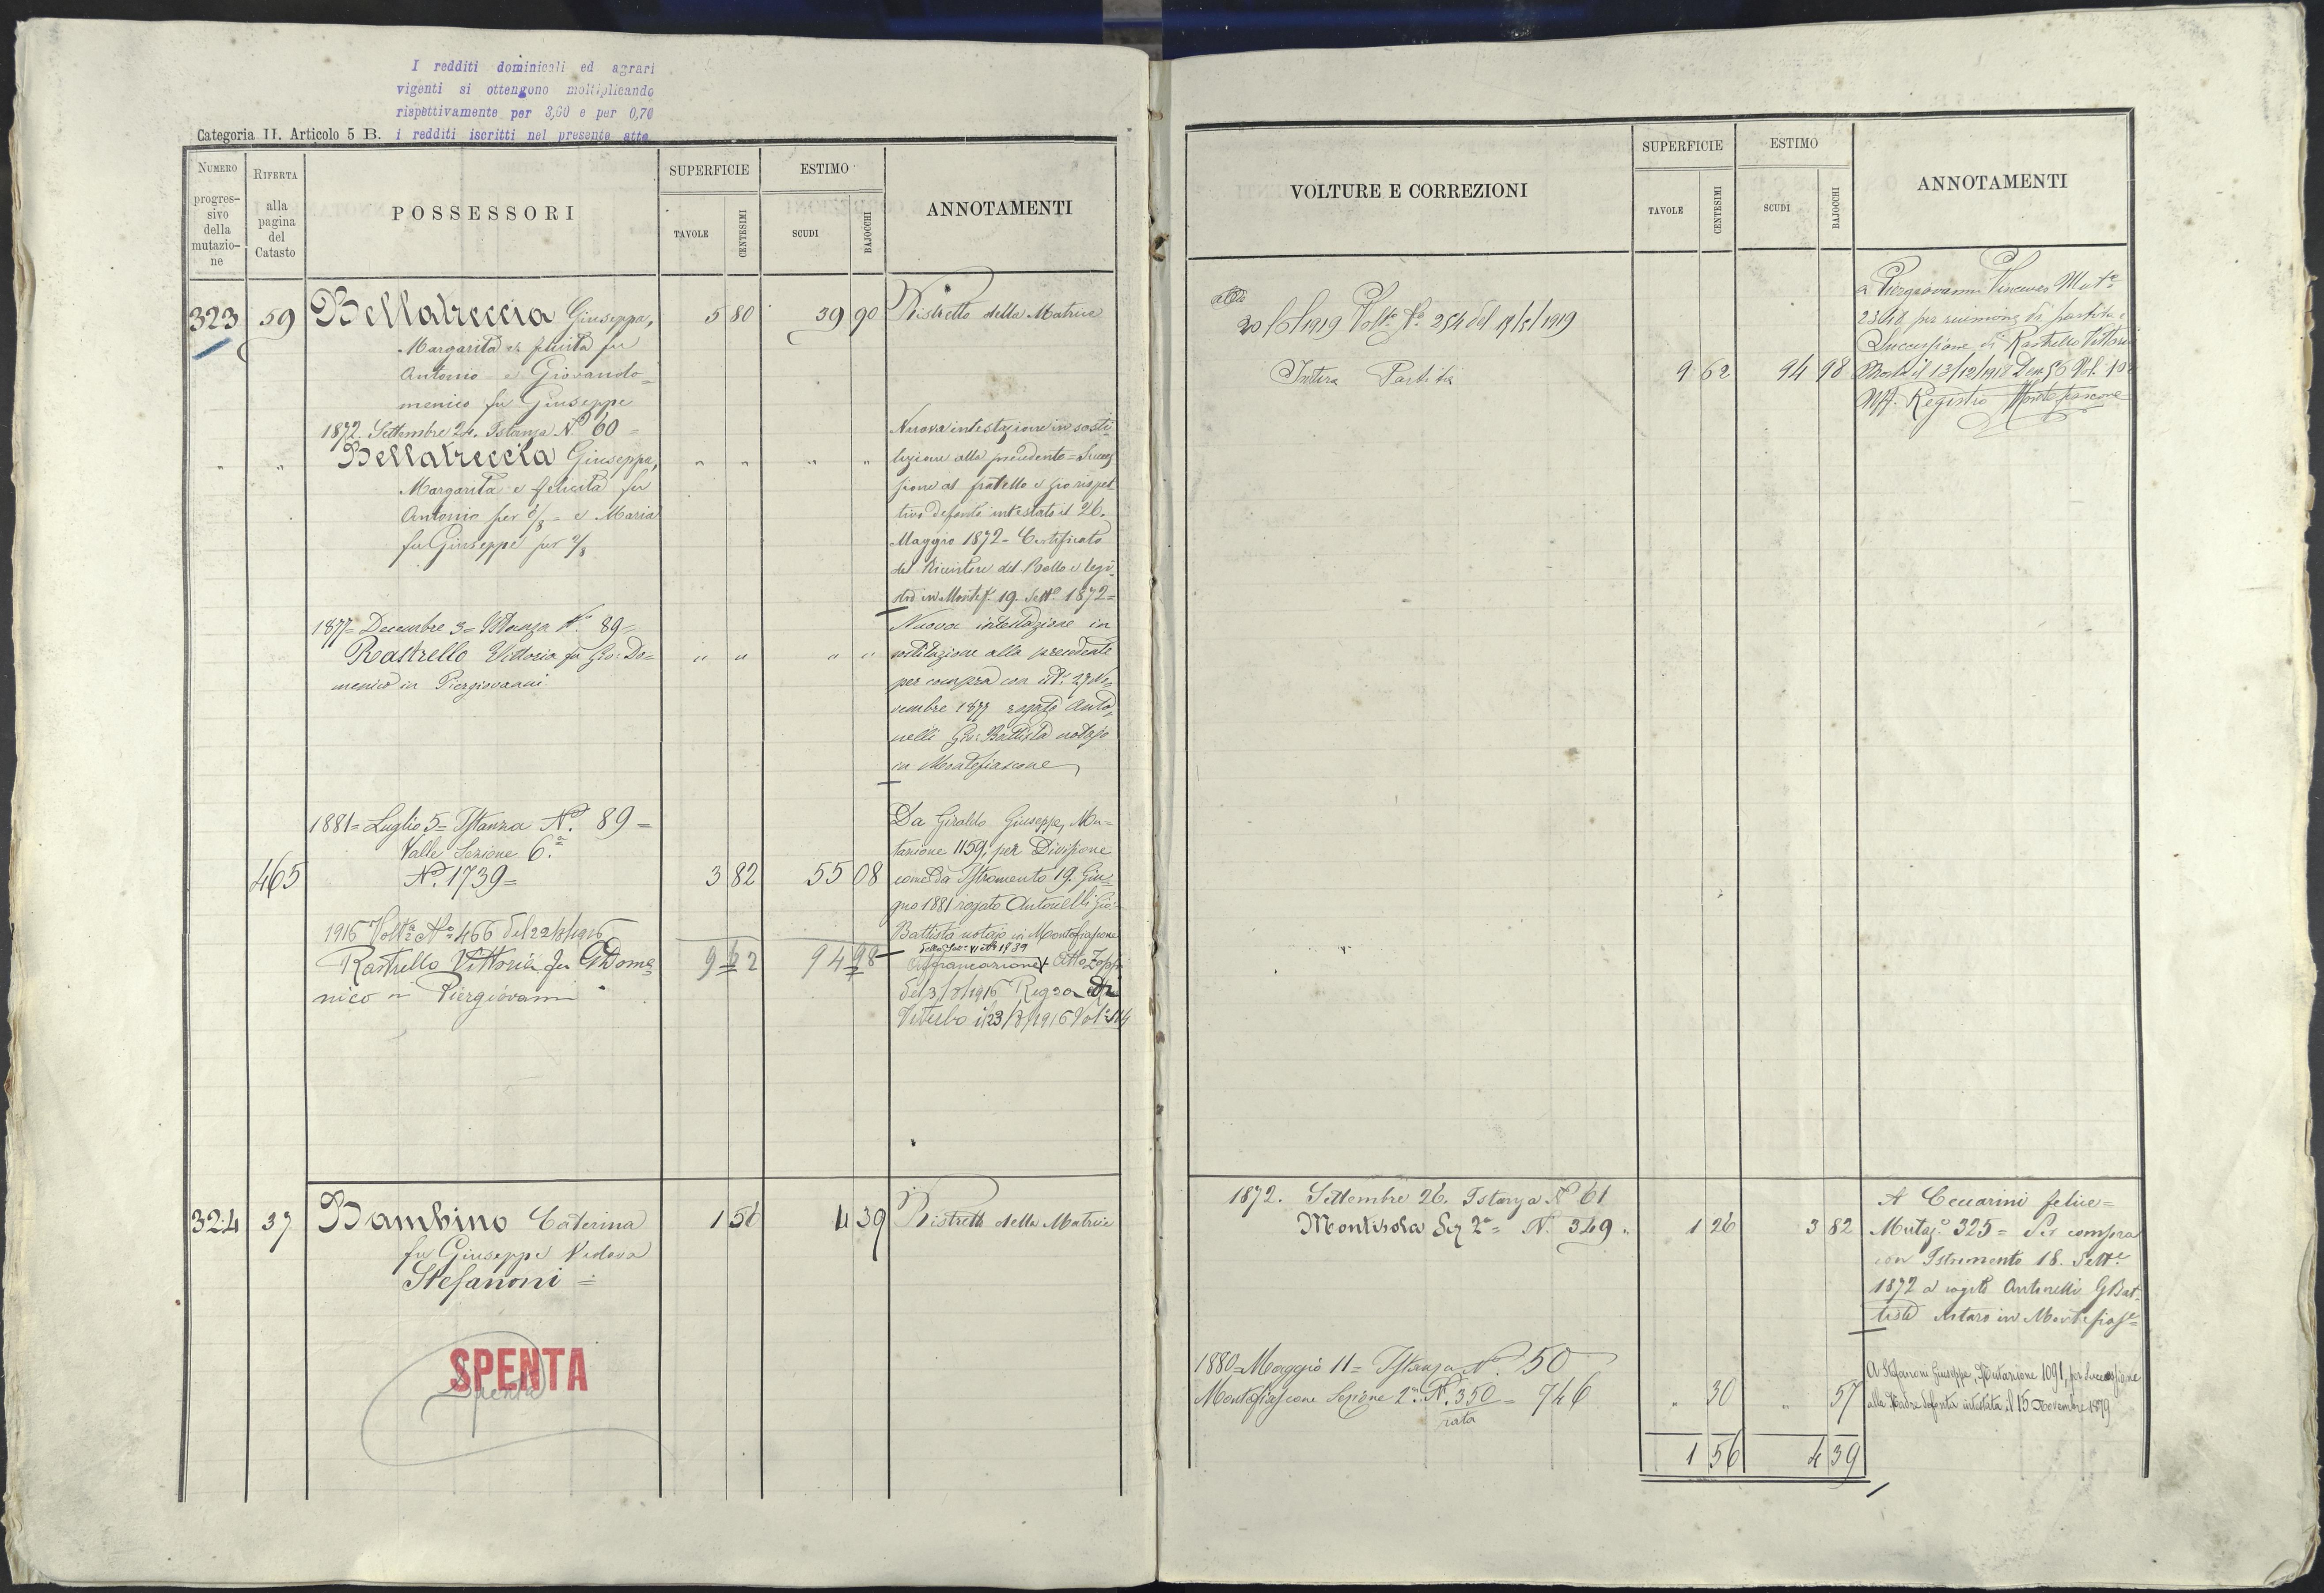 I redditi dominicali ed agrari
vigenti si ottengono moltiplicando
rispettivamente per 3,60 e per 0,70
i redditi iscritti nel presente atto.
Categoria II. Articolo 5 B.
NUMERO progressivo della mutazione
RIFERTA alla pagina del Catasto
POSSESSORI
SUPERFICIE
TAVOLE
CENTESIMI
ESTIMO
SCUDI
BAJOCCHI
ANNOTAMENTI
323 59 Bellatreccia Giuseppa, 5 80 39 90 Ristretto della Matrice
Margarita e felicita fu
Antonio e Giovando=
menico fu Giuseppe
1872. Settembre 24. Istanza N.º 60=
" " Bellatreccia Giuseppa, " " " "
Margarita e felicita fu
Antonio per 6/8 = e Maria
fu Giuseppe per 2/8
Nuova intestazione in sosti=
tuzione alla precedente = Succes
sione al fratello e zio rispet
tivo defonto intestato il 26.
Maggio 1872 = Certificato
del Ricevitore del Bollo e Regi=
stro in Montef. 19. Sett.e 1872=
1877= Decembre 3= Istanza N.º 89=
Rastrello Vittoria fu Gio: Do= " " " "
menico in Piergiovanni
Nuova intestazione in
sostituzione alla precedente
per compra con ist.º 27 No=
vembre 1877 rogato Anto=
nelli Gio: Battista notajo
in Montefiascone
1881= Luglio 5= Istanza N.º 89=
Valle Sezione 6.ª
465 N.º 1739= 3 82 55 08
Da Giraldo Giuseppe, Mu=
tazione 1159, per Divisione
come da Istromento 19. Giu=
gno 1881 rogato Antonelli Gio:
Battista notajo in Montefiascone
1916 Volt.ª N.º 466 del 22/8/1916
Rastrello Vittoria fu G Dome= 9 62 94 98
nico in Piergiovanni
Affrancazione Atto Zoppi
del 3/8/1916 Reg.to a
Viterbo il 23/8/1916 Vol. 114
324 37 Bambino Caterina 1 56 4 39 Ristretto della Matrice
fu Giuseppe Vedova
Stefanoni =
SPENTA
Spenta
VOLTURE E CORREZIONI
SUPERFICIE
TAVOLE
CENTESIMI
ESTIMO
SCUDI
BAJOCCHI
ANNOTAMENTI
20/6/1919 Volt.ª N.º 254 del 17/5/1919
Intera Partita 9 62 94 98
a Piergiovanni Vincenzo Mut.e
per riunione di partita e
Successione di Rastrello Vittoria
Morta il 13/12/1918 Den. 56 Vol. 10
Uff. Registro Montefiascone
1872. Settembre 26. Istanza N.º 61
Montisola Sez 2ª= N. 349. 1 26 3 82
A Ceccarini felice=
Mutaz.e 325= Per compra
con Istrumento 18. Sett.e
1872 a rogito Antonelli G Bat=
tista Notaro in Montefias.e
1880= Maggio 11= Istanza N.º 50
Montefiascone Sezione 2ª N.º 350 = 746 " 30 " 57
rata
A Stefanoni Giuseppe, Mutazione 1091, per Successione
alla Madre defonta intestata il 15 Novembre 1879
1 56 4 39